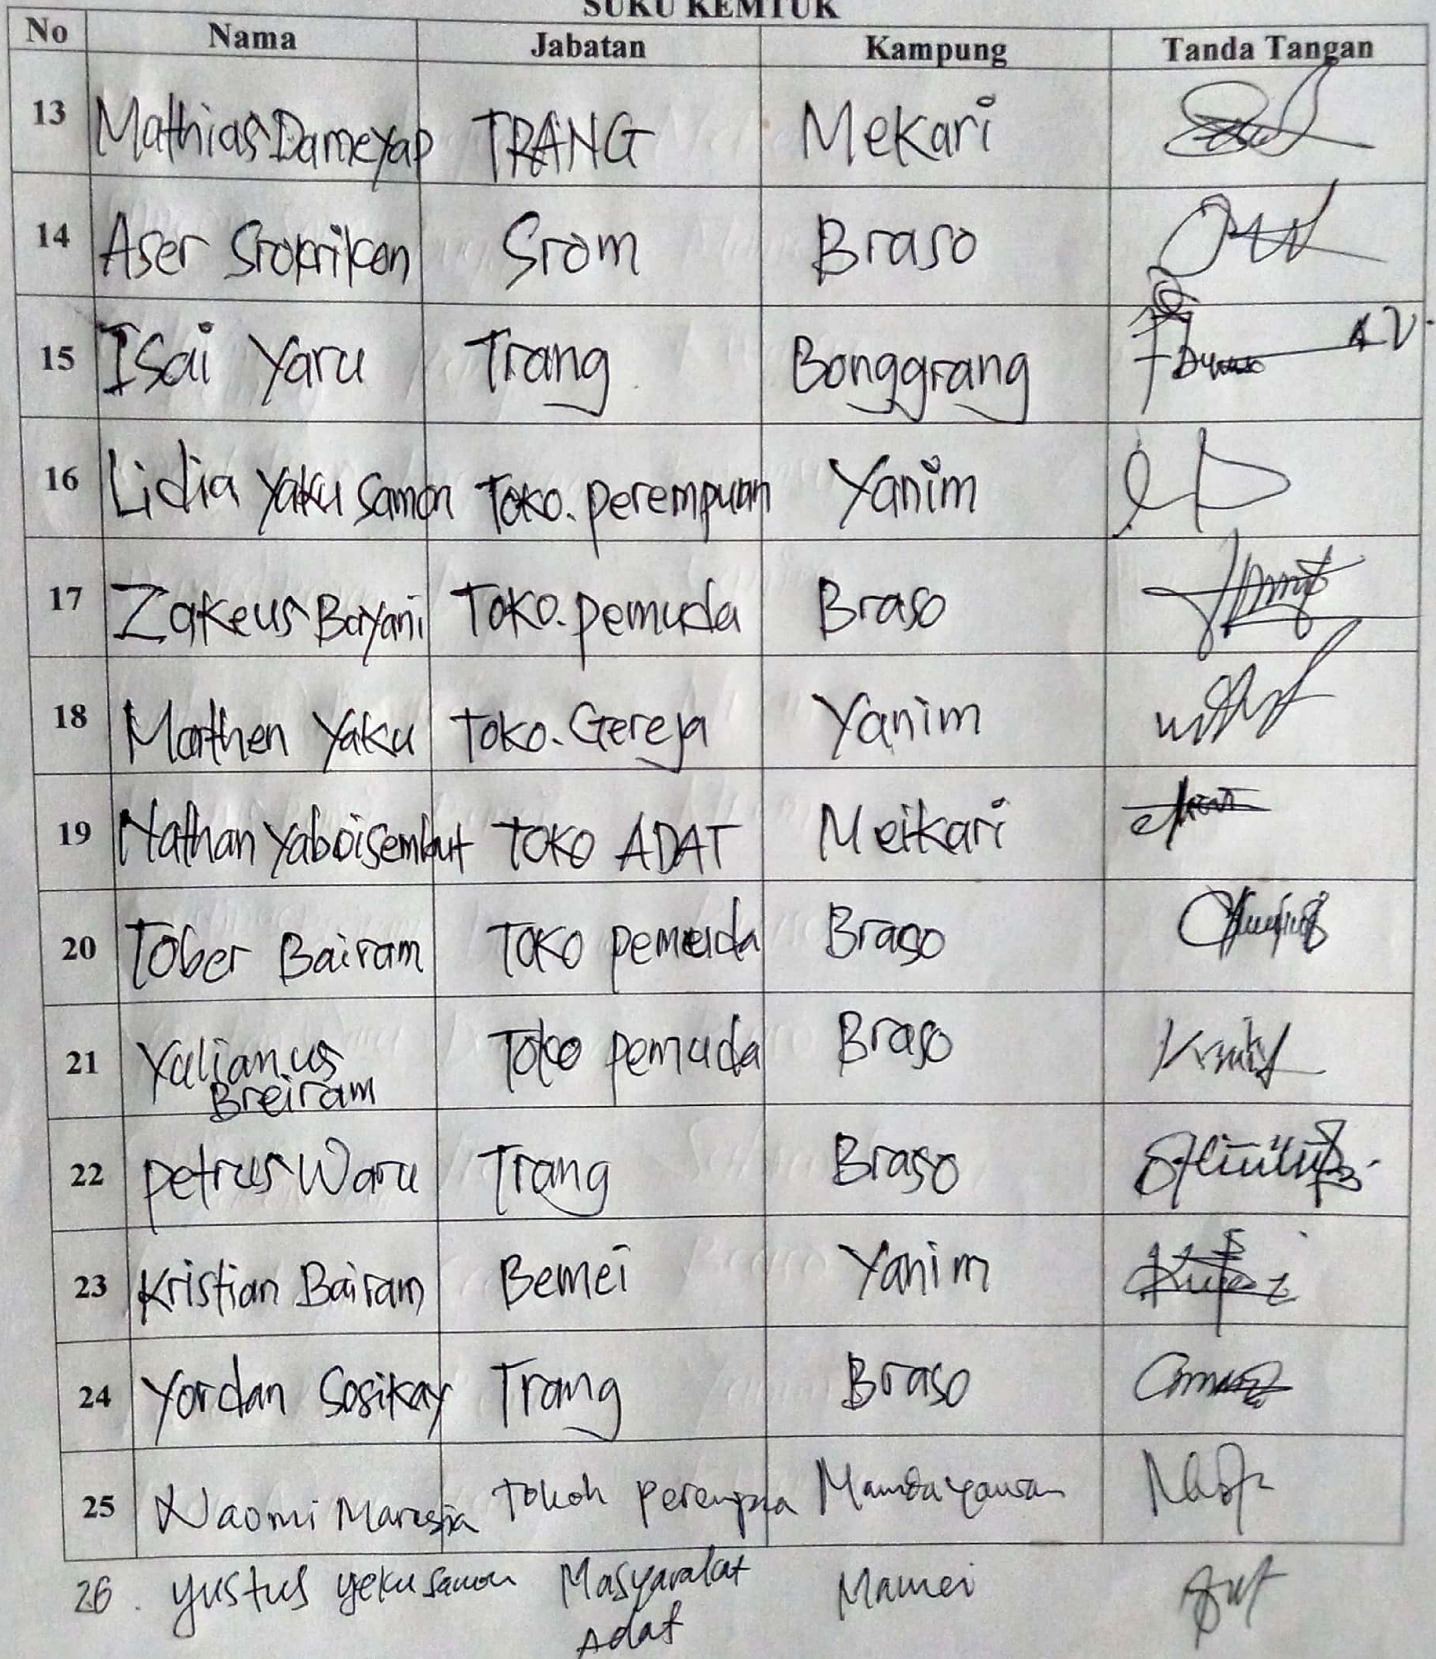 SUKU KEMTUK
No Nama Jabatan Kampung Tanda Tangan
13 Mathias Dameyap TRANG Mekari
14 Aser Srokriken Srom Braso
15 Isai Yaru Trang Bonggrang
16 Lidia Yaku Samon Toko. perempuan Yanim
17 Zakeus Boryani Toko. pemuda Braso
18 Marthen Yaku Toko. Gereja Yanim
19 Nathan Yaboisembut TOKO ADAT Meikari
20 Tober Bairam TOKO pemuda Braso
21 Yulianus Toko pemuda Braso
Breiram
22 petrus Waru Trang Braso
23 Kristian Bairam Bemei Yanim
24 Yordan Sosikay Trang Braso
25 Naomi Tokoh
26. yustus yekusamon Masyarakat Mamei
Adat